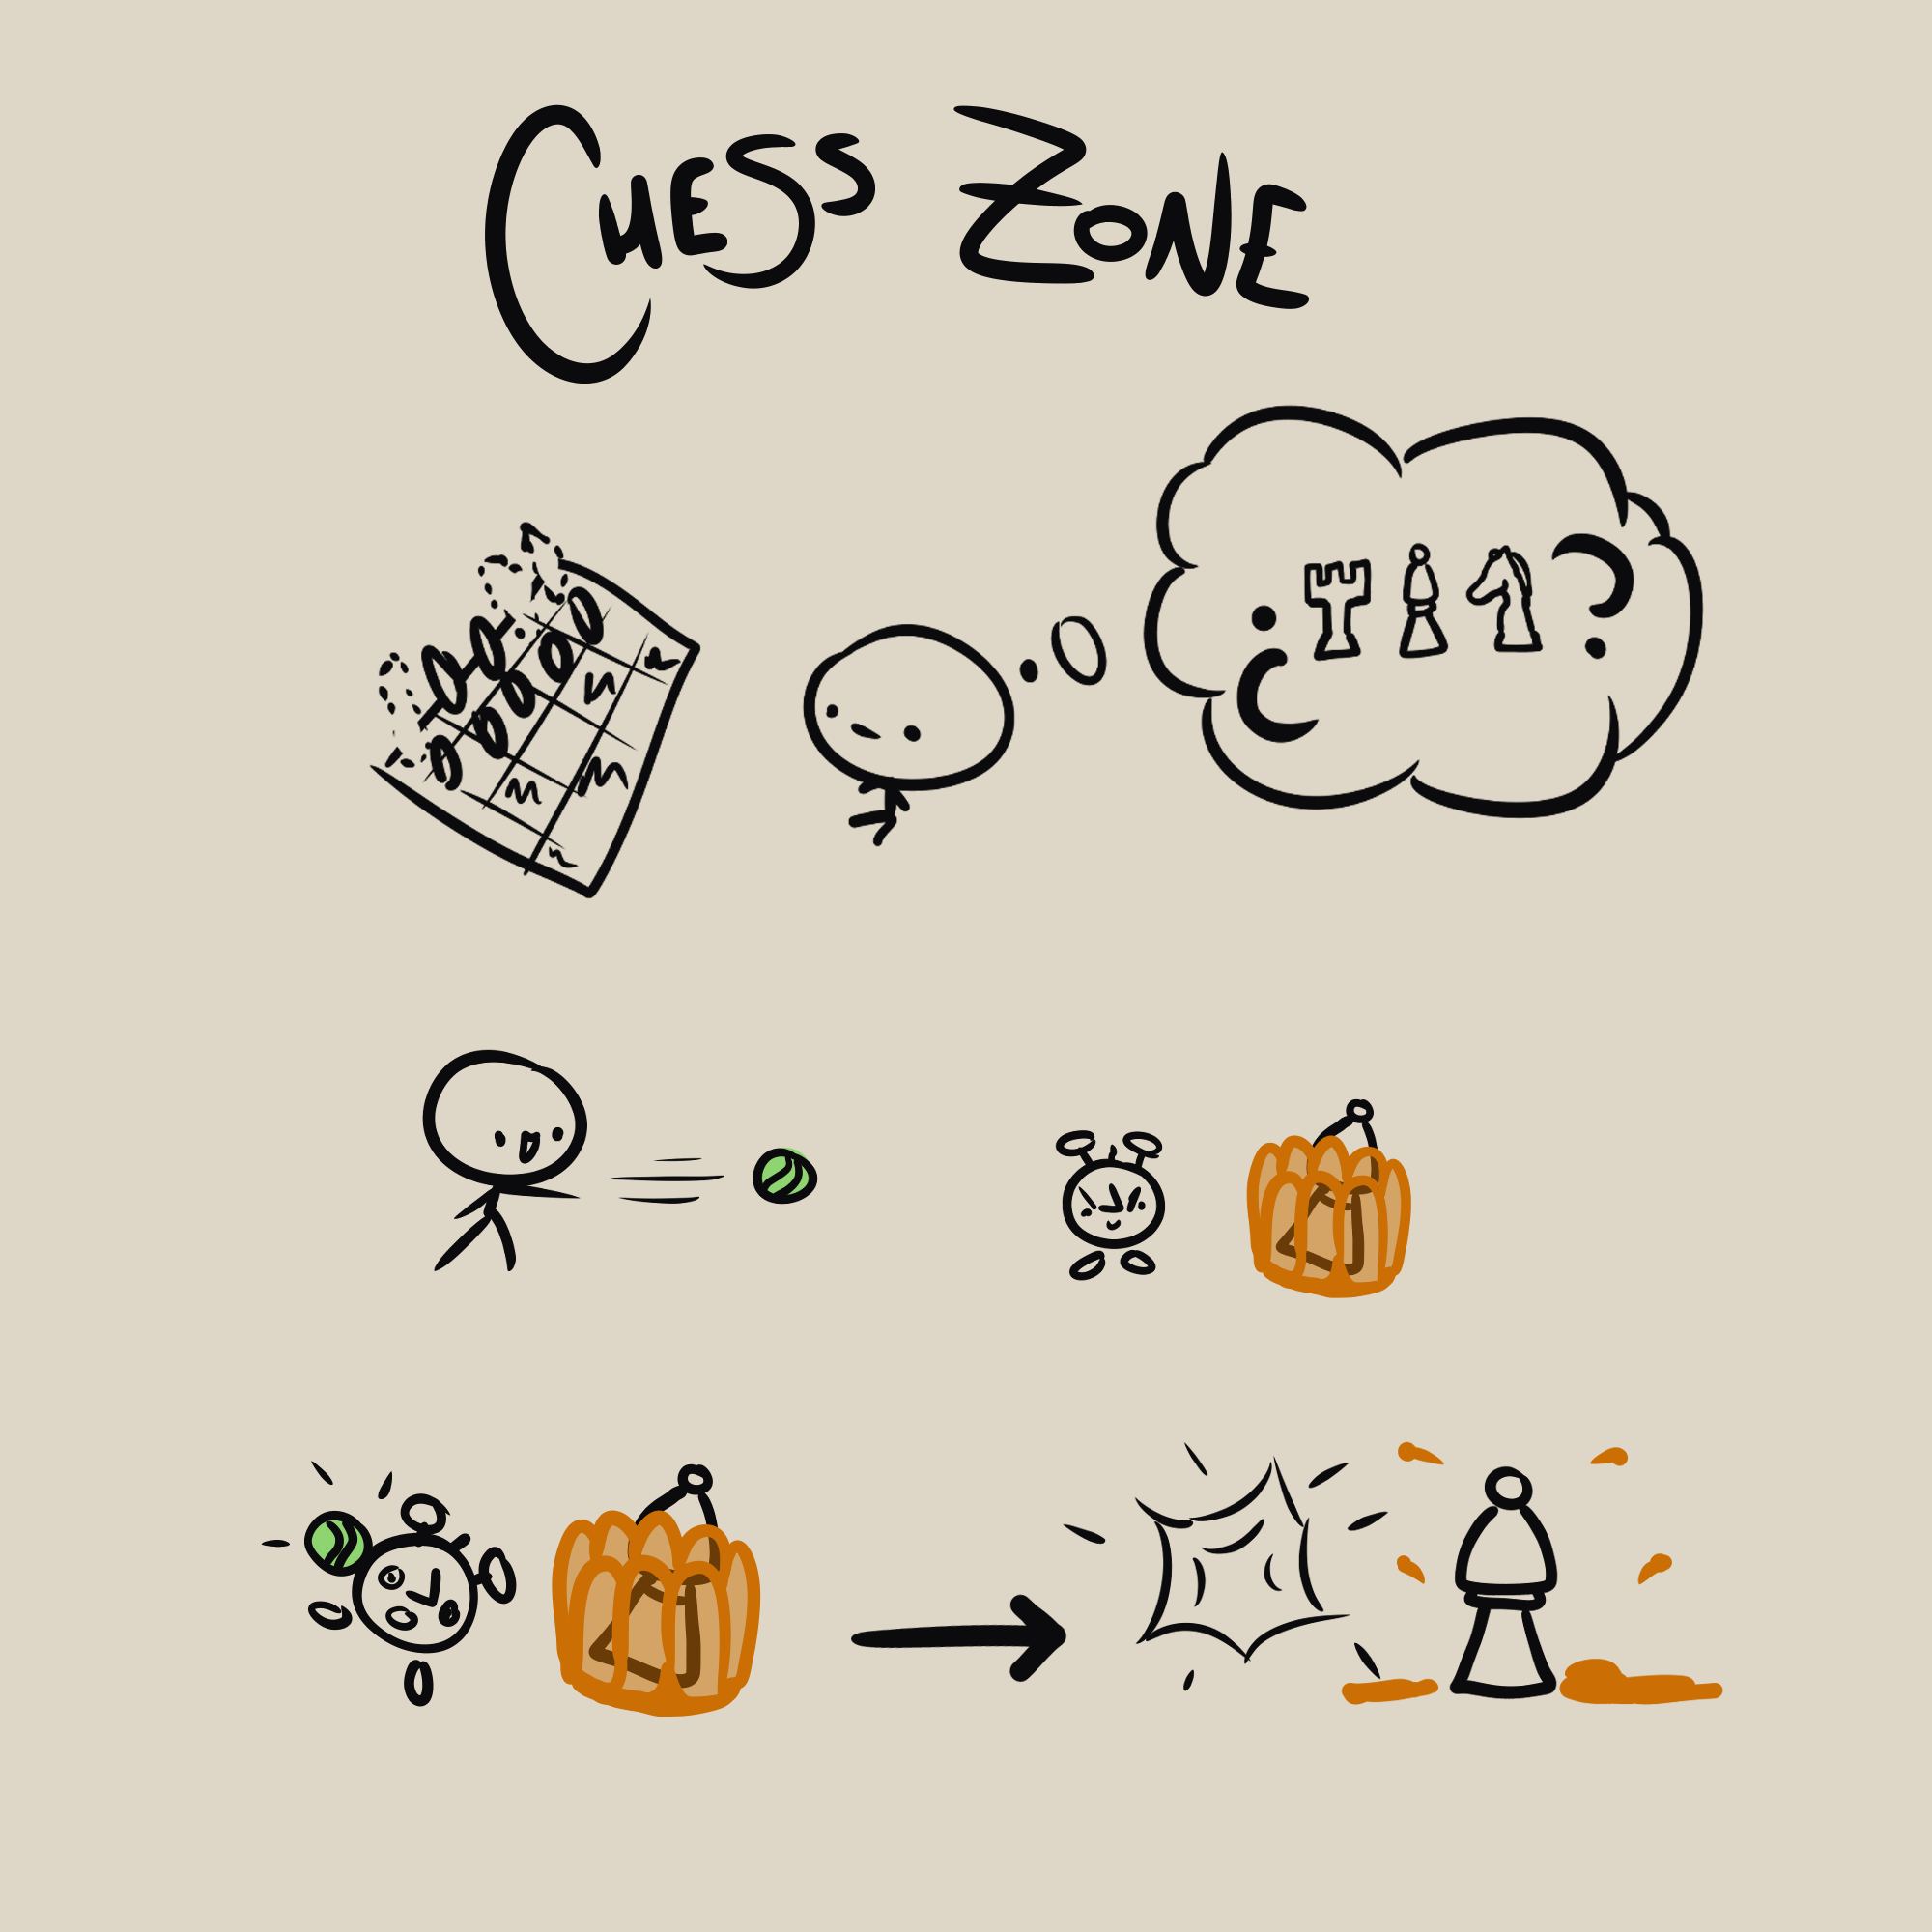 CHESS ZONE
¿ ?